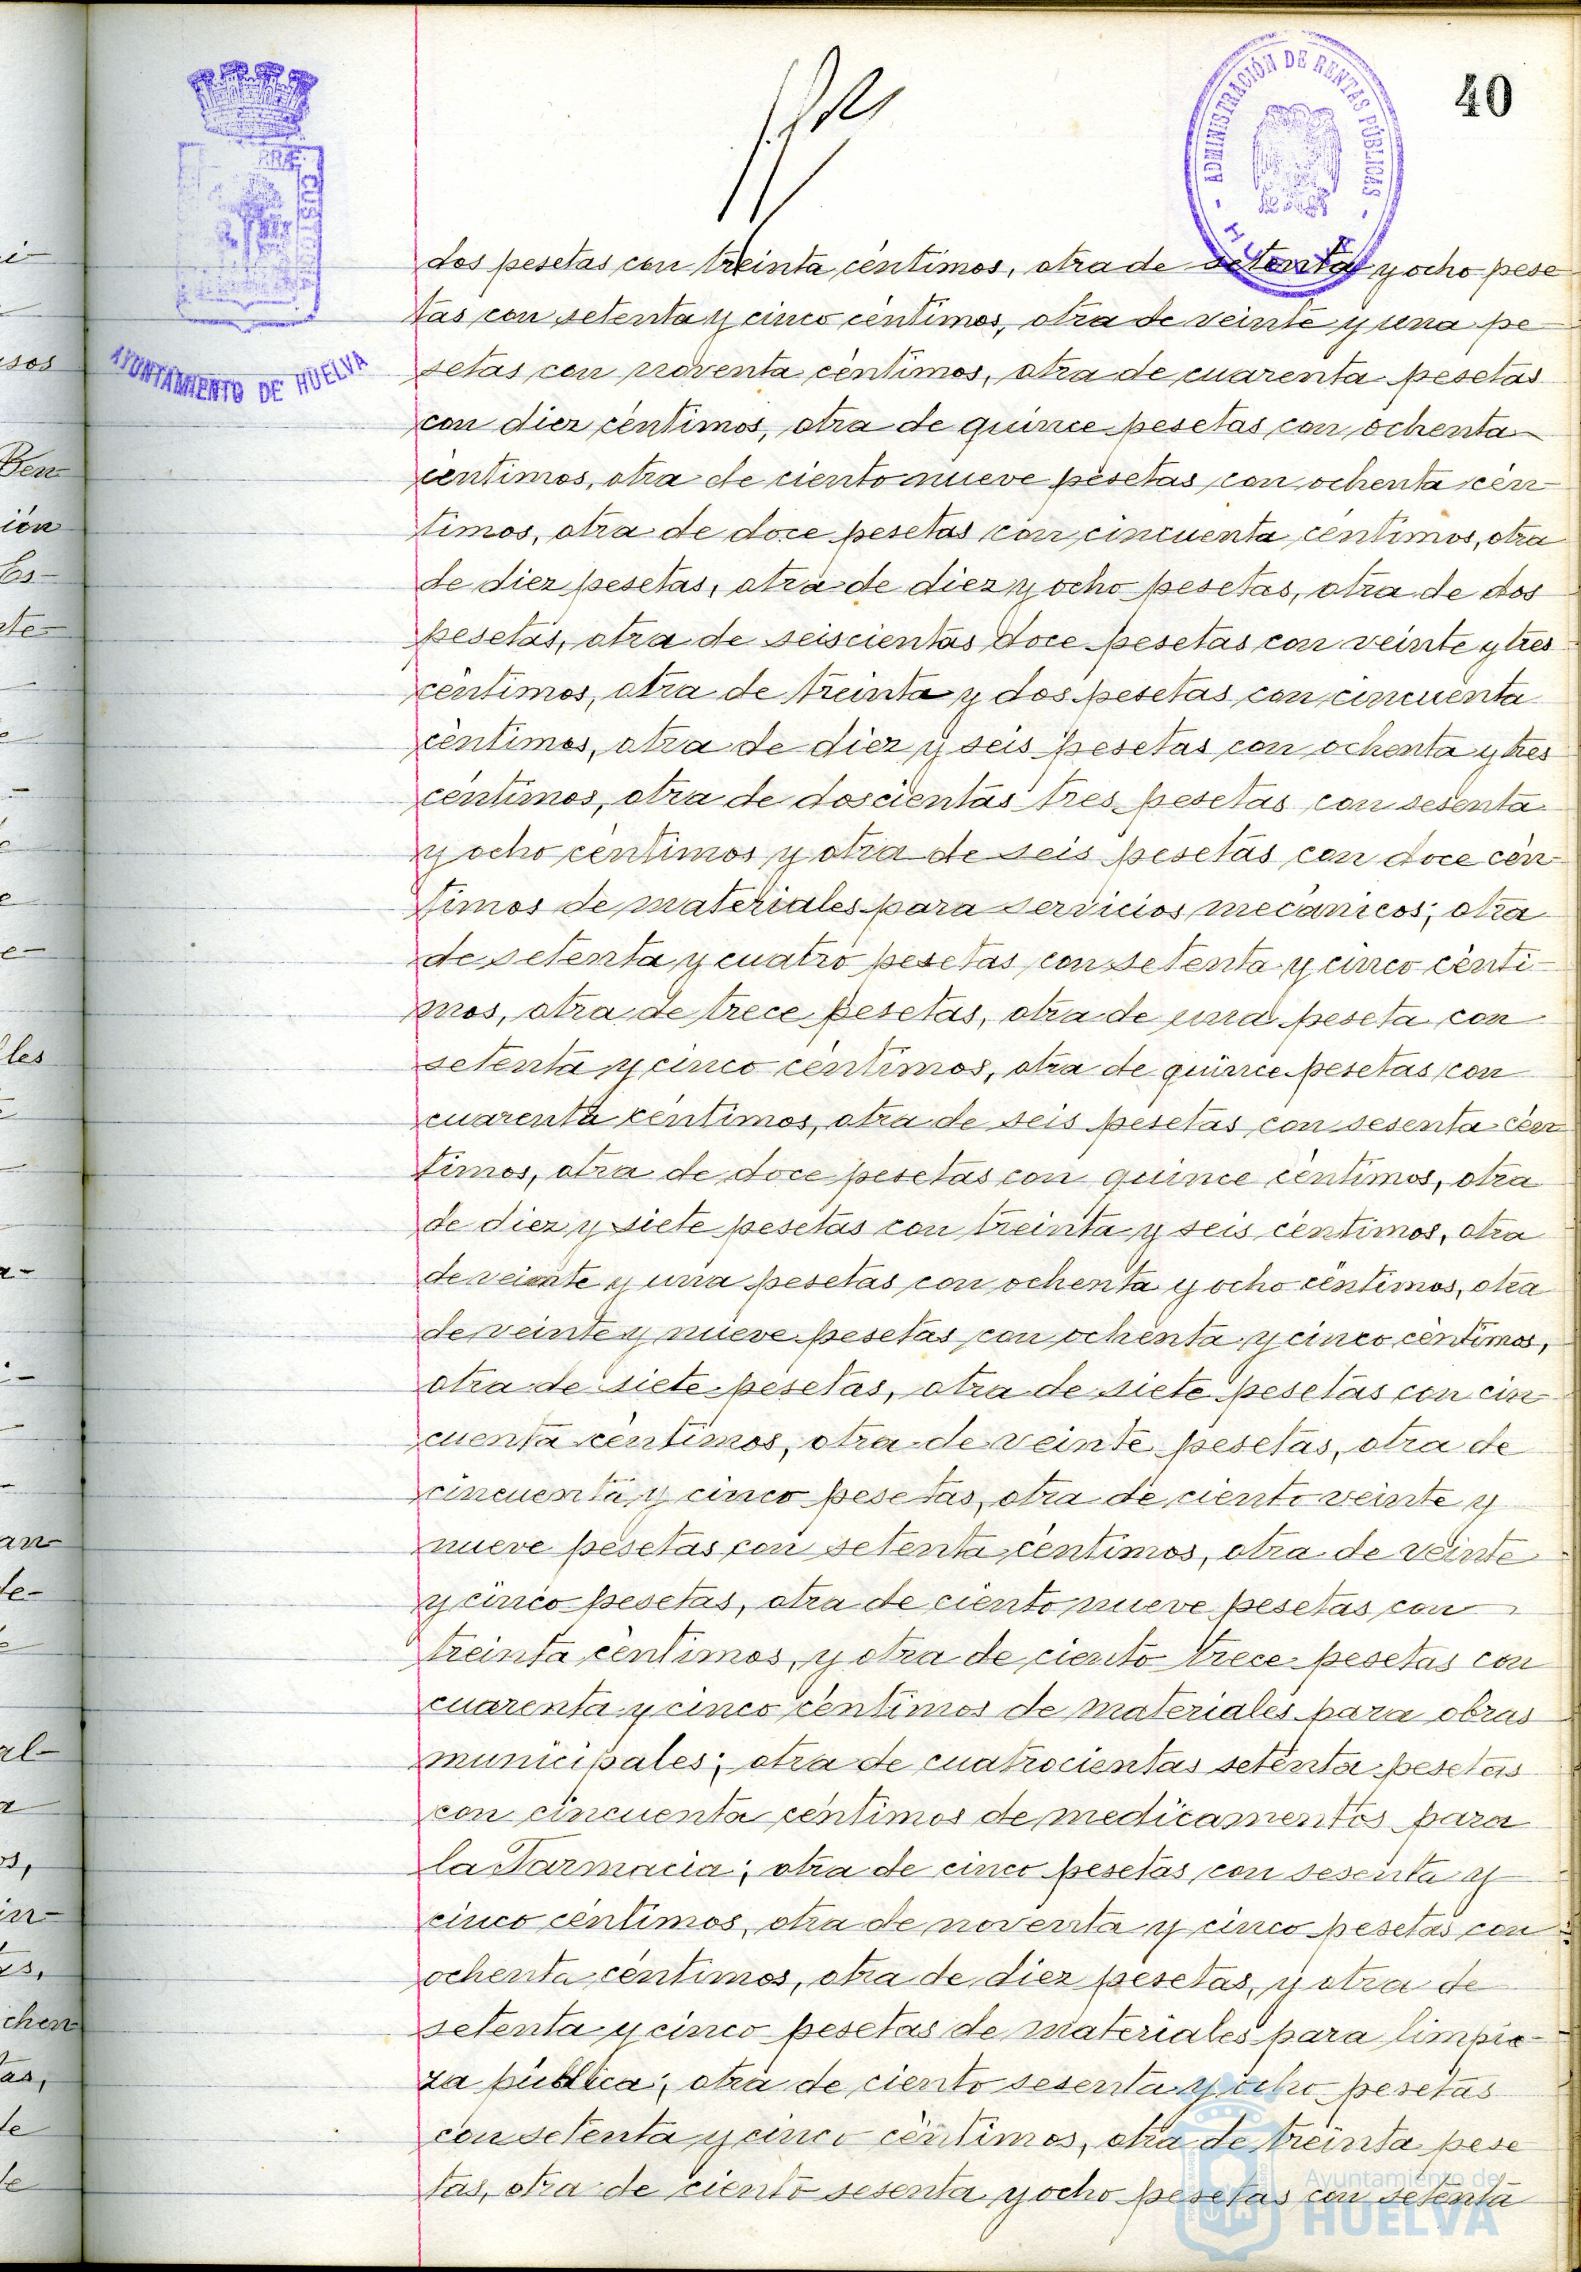 40
ADMINISTRACIÓN DE RENTAS PÚBLICAS
HUELVA
CUSTODIA
AYUNTAMIENTO DE HUELVA
dos pesetas con treinta céntimos, otra de setenta y ocho pese
tas con setenta y cinco céntimos, otra de veinte y una pe-
setas con noventa céntimos, otra de cuarenta pesetas
con diez céntimos, otra de quince pesetas con ochenta
céntimos, otra de ciento nueve pesetas con ochenta cén-
timos, otra de doce pesetas con cincuenta céntimos, otra
de diez pesetas, otra de diez y ocho pesetas, otra de dos
pesetas, otra de seiscientas doce pesetas con veinte y tres
céntimos, otra de treinta y dos pesetas con cincuenta
céntimos, otra de diez y seis pesetas con ochenta y tres
céntimos, otra de doscientas tres pesetas con sesenta
y ocho céntimos y otra de seis pesetas con doce cén-
timos de materiales para servicios mecánicos; otra
de setenta y cuatro pesetas con setenta y cinco cénti-
mos, otra de trece pesetas, otra de una peseta con
setenta y cinco céntimos, otra de quince pesetas con
cuarenta céntimos, otra de seis pesetas con sesenta cén
timos, otra de doce pesetas con quince céntimos, otra
de diez y siete pesetas con treinta y seis céntimos, otra
de veinte y una pesetas con ochenta y ocho céntimos, otra
de veinte y nueve pesetas con ochenta y cinco céntimos,
otra de siete pesetas, otra de siete pesetas con cin-
cuenta céntimos, otra de veinte pesetas, otra de
cincuenta y cinco pesetas, otra de ciento veinte y
nueve pesetas con setenta céntimos, otra de veinte
y cinco pesetas, otra de ciento nueve pesetas con
treinta céntimos, y otra de ciento trece pesetas con
cuarenta y cinco céntimos de materiales para obras
municipales; otra de cuatrocientas setenta pesetas
con cincuenta céntimos de medicamentos para
la Farmacia; otra de cinco pesetas con sesenta y
cinco céntimos, otra de noventa y cinco pesetas con
ochenta céntimos, otra de diez pesetas, y otra de
setenta y cinco pesetas de materiales para limpie-
za pública; otra de ciento sesenta y ocho pesetas
con setenta y cinco céntimos, otra de treinta pese
tas, otra de ciento sesenta y ocho pesetas con setenta
Ayuntamiento de
HUELVA